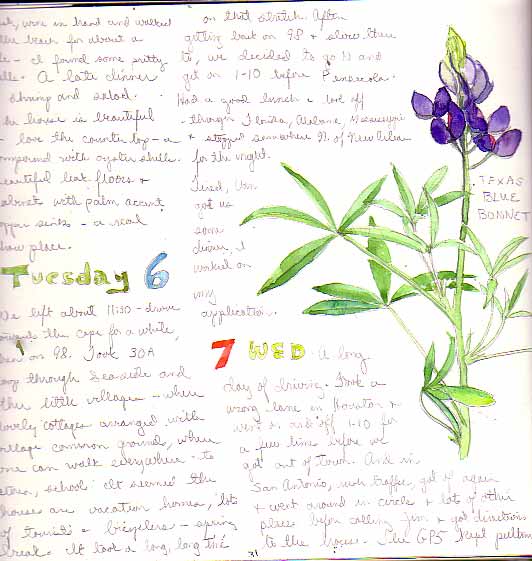 work in hand and walked
the beach for about a
I found some pretty
A late dinner
shrimp and salad.
house is beautiful
- love the counter top - a
with oyster shells.
beautiful leak floors &
with palm accent
sinks - a real
show place.
Tuesday 6
We left about 11:30 - drove
towards the cape for a while,
on 98. Took 30A
way through Seaside and
other little villages - where
lovely cottages arranged with
village common ground, where
one can walk everywhere - to
stores, school. It seemed the
houses are vacation homes, lots
of tourists & bicyclers - spring
break. It took a long, long time
on that stretch. After
getting back on 98 & slow there
to, we decided to go N and
get on I-10 before Pensacola.
Had a good lunch & took off
through Florida, Alabama, Mississippi
& stopped somewhere N. of New Orleans
for the night.
Tired,
got us
some
dinner, I
worked on
my
application.
TEXAS
BLUE
BONNET
7 WED - A long
day of driving. Took a
wrong lane in Houston &
went & and off I-10 for
a few times before we
got out of town. And in
San Antonio, such traffic, got off again
& went around in circle & lot of other
places before calling Jim & got directions
to the house. The GPS kept putting
31